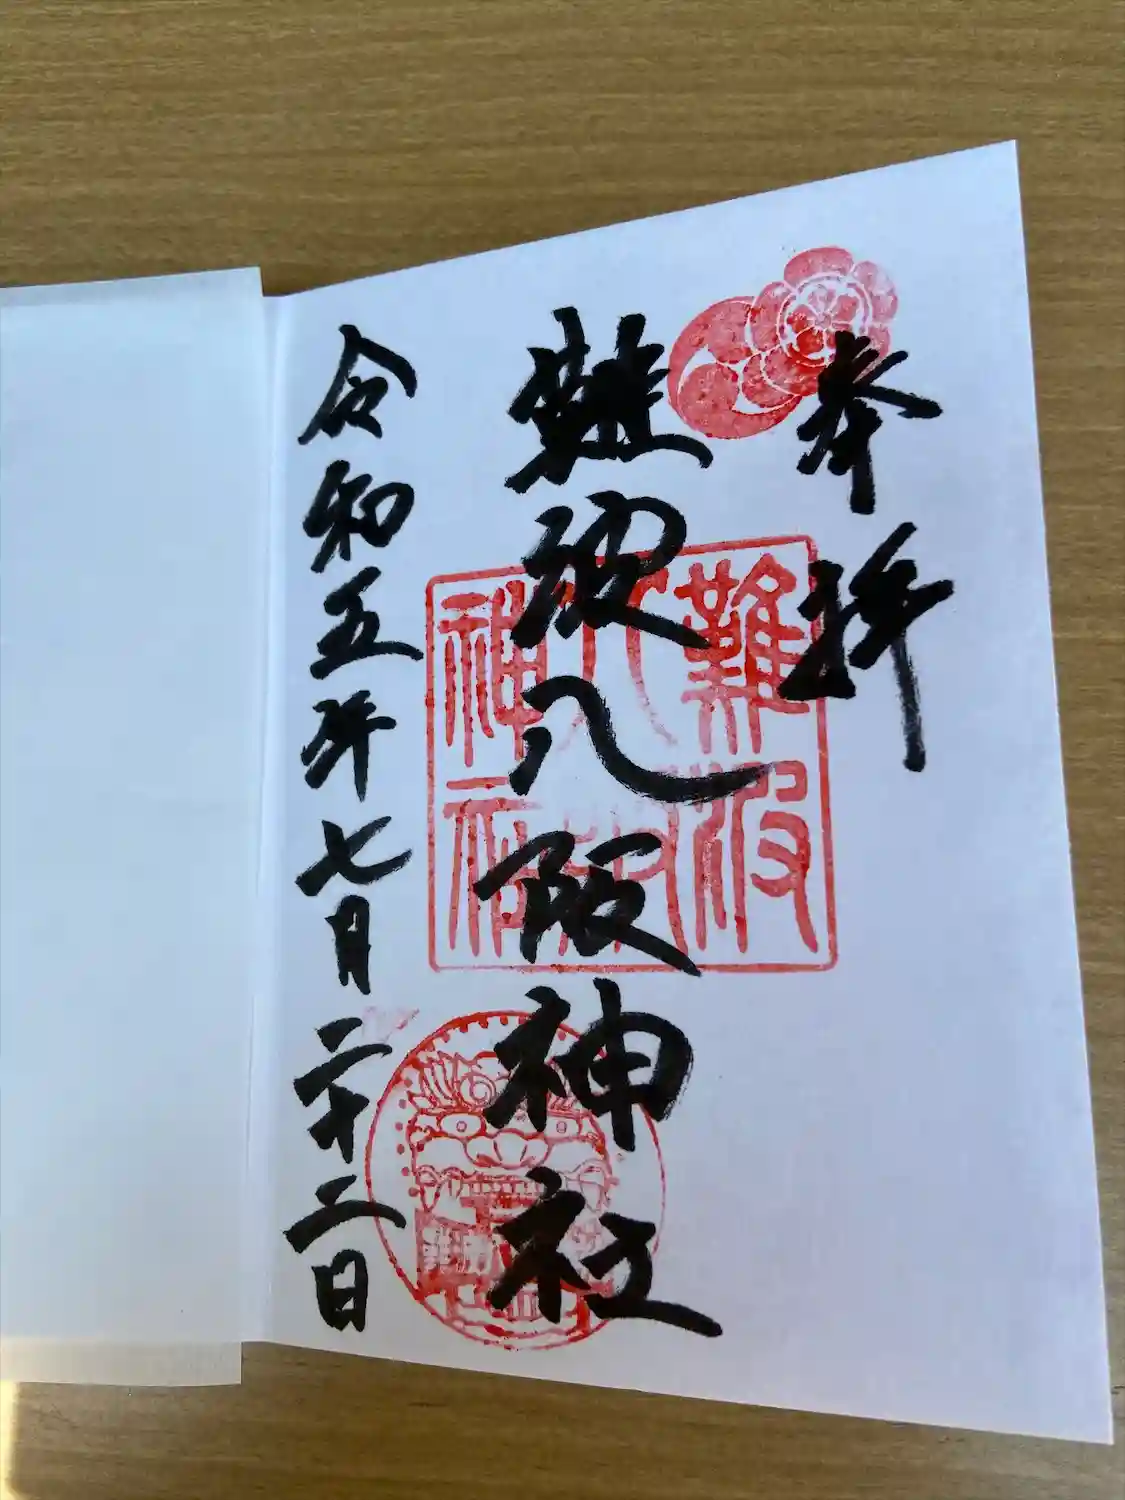 奉拝
難波八阪神社
令和五年七月二十二日
難波
八阪
神社